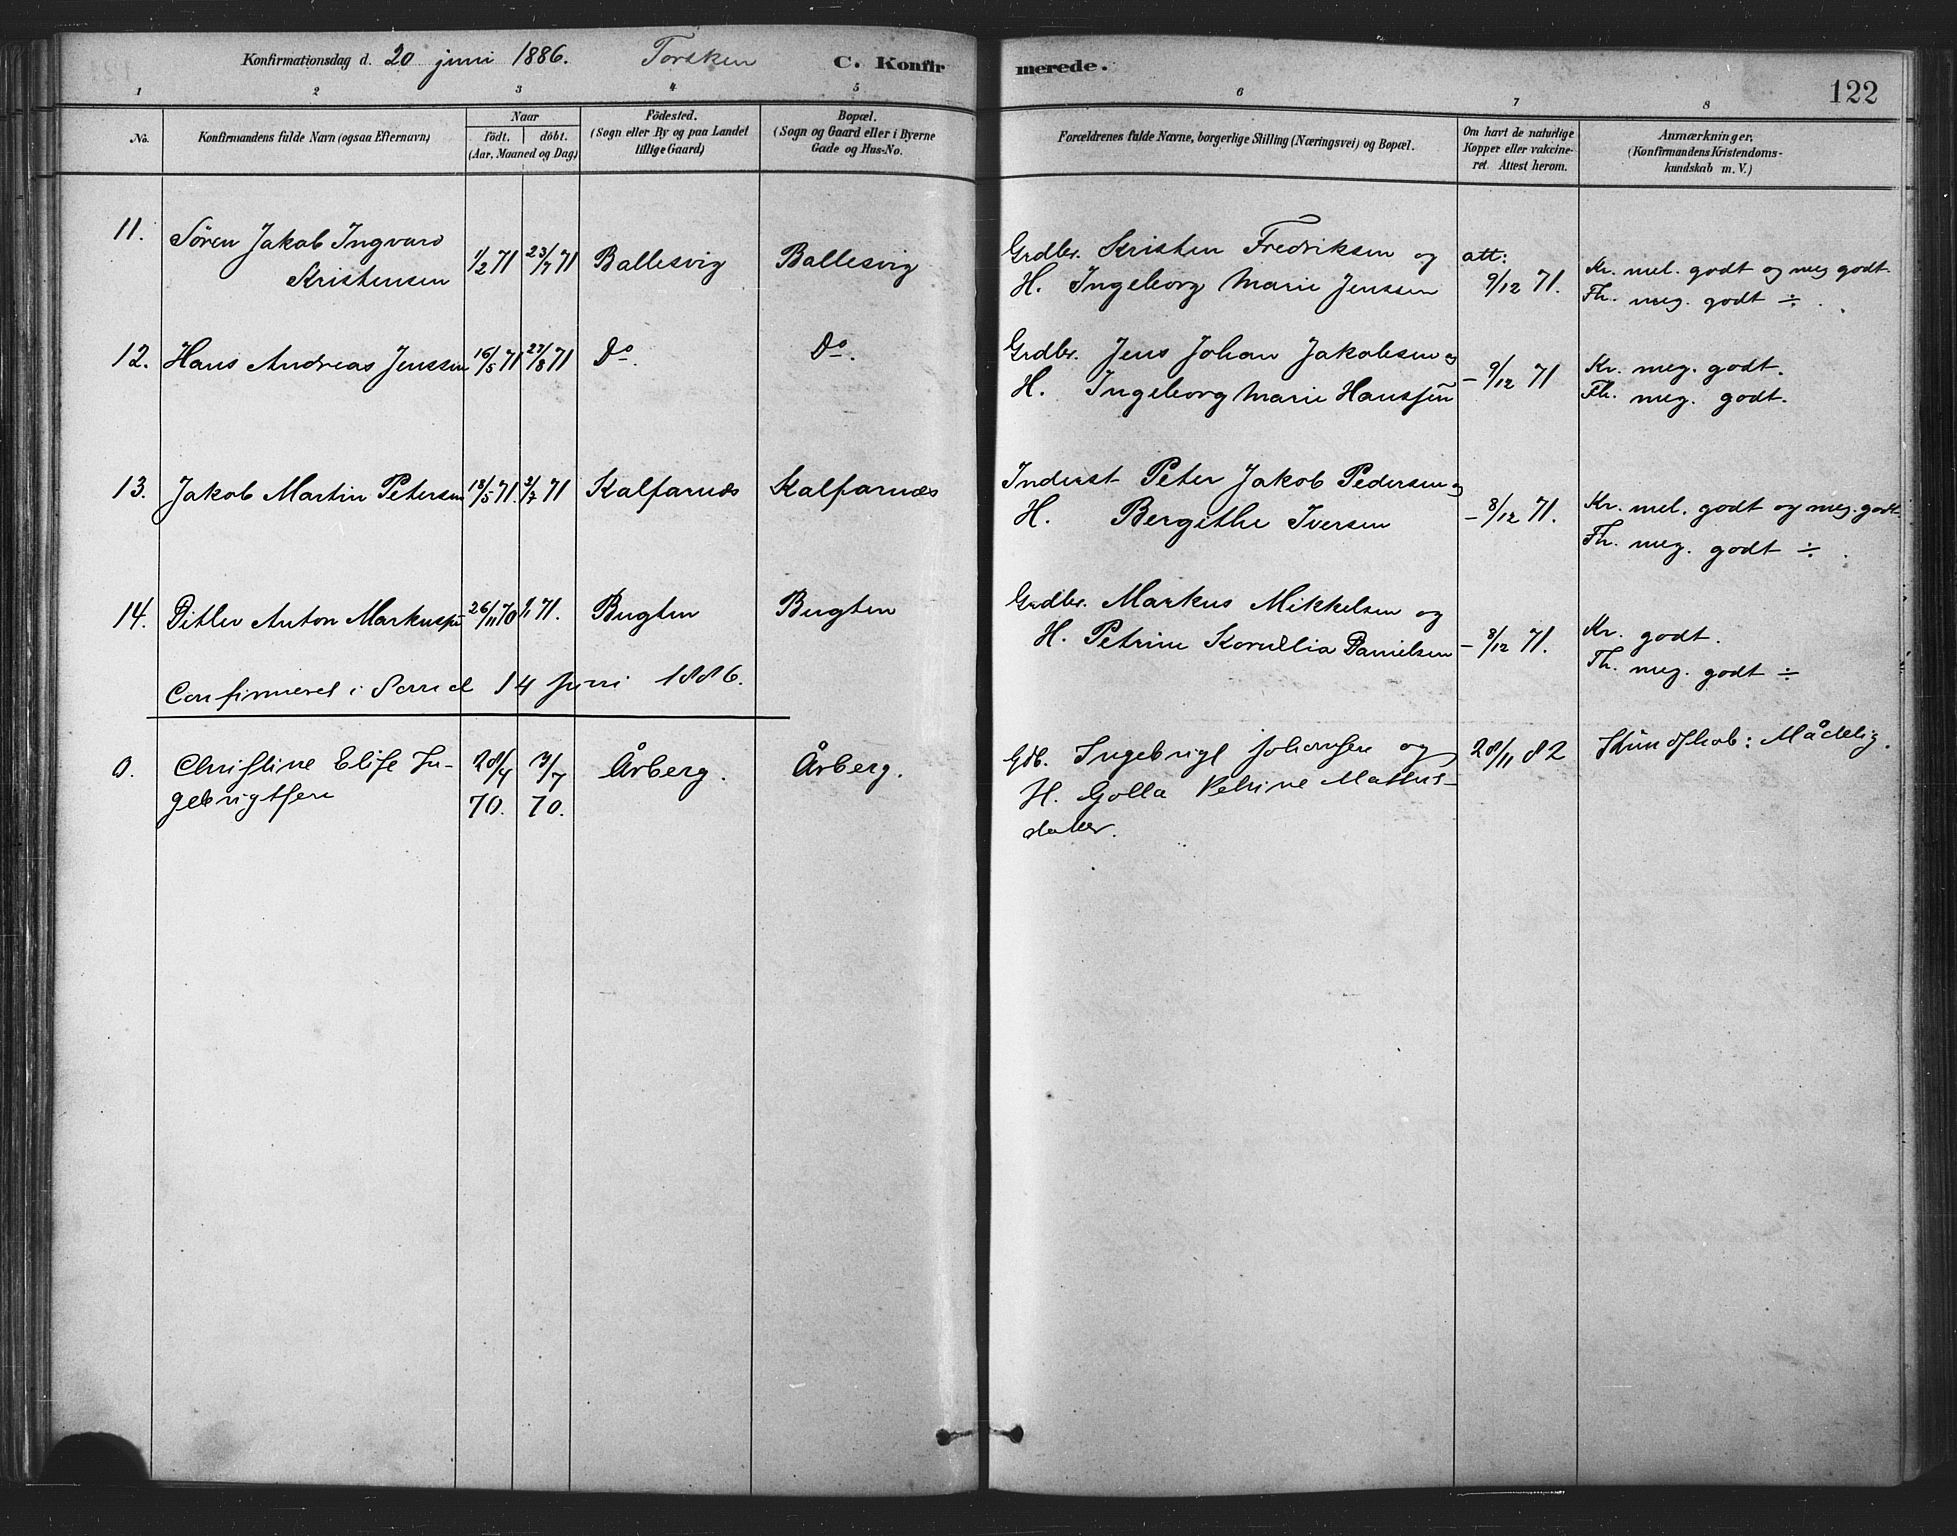 Konfirmationsdag d. 20 juni 1886. Torsken C. Konfirmerede. 122
1 2 3 4 5 6 7 8
No. Konfirmandens fulde Navn (ogsaa Efternavn)
Naar
födt. döbt.
(Aar, Maaned og Dag)
Födested.
(Sogn eller By og paa Landet
tillige Gaard)
Bopæl.
(Sogn og Gaard eller i Byerne
Gade og Hus-No.
Forældrenes fulde Navne, borgerlige Stilling (Næringsvei) og Bopæl.
Om havt de naturlige
Kopper eller vakcine-
ret. Attest herom.
Anmærkninger,
(Konfirmandens Kristendoms-
kundskab m. V.)
11. Sören Jakob Ingvard
Kristensen 1/2 71 23/7 71 Ballesvig Ballesvig
Grdbr. Kristen Fredriksen og
H. Ingeborg Marie Jenssen
att:
9/12 71.
Kr. mel. godt og meg godt.
Fh. meg. godt ÷ .
12. Hans Andreas Jenssen 16/5 71 27/8 71 Do. Do.
Grdbr. Jens Johan Jakobsen og
H. Ingeborg Marie Hanssen
– 9/12 71
Kr. meg. godt.
Fh. meg. godt.
13. Jakob Martin Petersen 18/5 71. 2/7 71 Kalfarnæs Kalfarnæs
Inderst Peter Jakob Pedersen og
H. Bergithe Iversen
– 8/12 71.
Kr. mel. godt og meg. godt.
Fh. meg. godt ÷ .
14. Ditlev Anton Markussen 26/11 70 71. Bugten Bugten
Grdbr. Markus Mikkelsen og
H. Petrine Kornellia Danielsen
– 8/12 71.
Kr. godt.
Fh. meg. godt ÷
Confirmeret i Sand 14 Juni 1886.
0. Christine Elise In-
gebrigtsen
28/4
70.
3/7
70.
Årberg. Årberg.
Gdb. Ingebrigt Johansen og
H. Golla Petrine Mathis-
datter.
28/11 82
Kundskab: Mådelig.